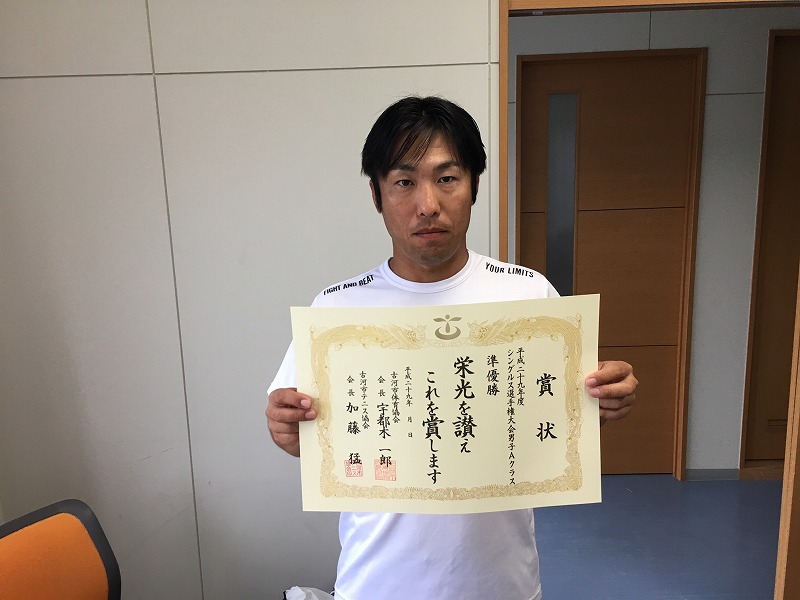 FIGHT AND BEAT
YOUR LIMITS
賞状
平成二十九年度
シングルス選手権大会男子Aクラス
準優勝
栄光を讃え
これを賞します
平成二十九年 月 日
古河市体育協会
会長 宇都木一郎
古河市テニス協会
会長 加藤猛